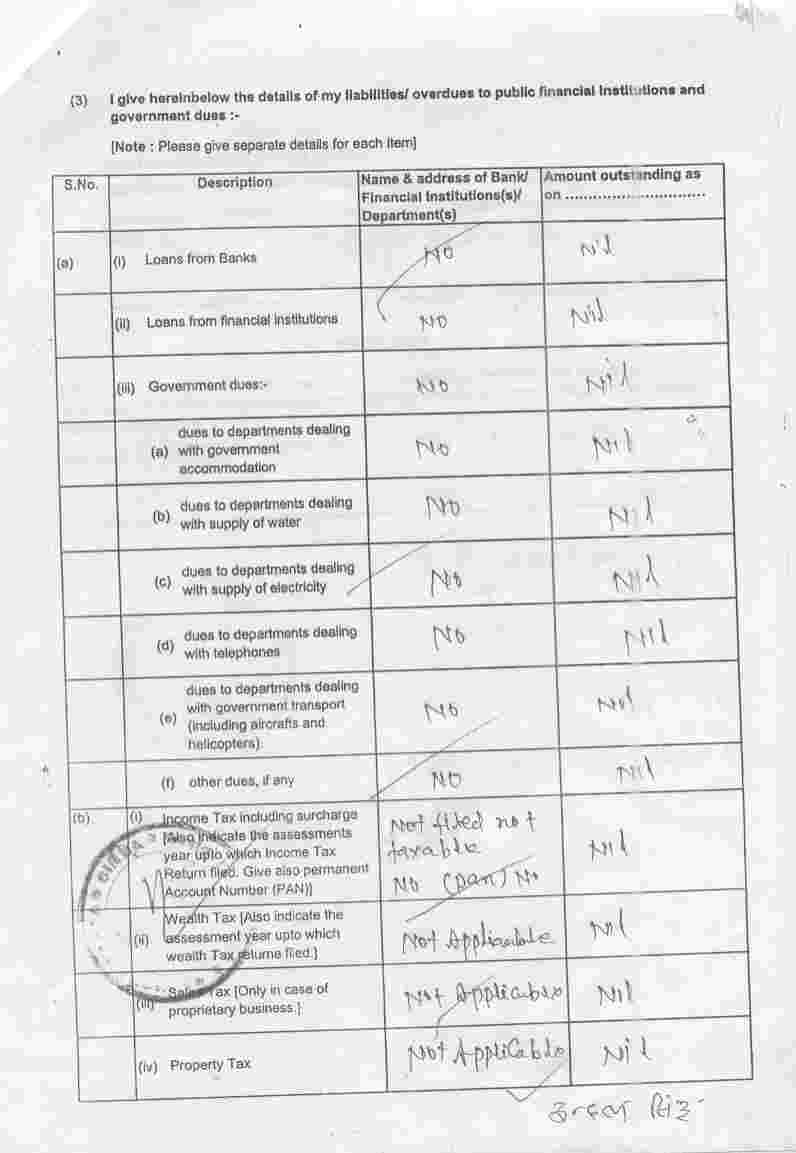 (3) I give hereinbelow the details of my liabilities/ overdues to public financial institutions and
government dues :-
[Note : Please give separate details for each item]
S.No. Description Name & address of Bank/ Financial Institutions(s)/ Department(s) Amount outstanding as on ..............................
(a) (i) Loans from Banks NO Nil
(ii) Loans from financial institutions NO Nil
(iii) Government dues:- NO Nil
dues to departments dealing
(a) with government NO Nil
accommodation
(b) dues to departments dealing NO Nil
with supply of water
(c) dues to departments dealing NO Nil
with supply of electricity
(d) dues to departments dealing NO Nil
with telephones
dues to departments dealing
(e) with government transport NO Nil
(including aircrafts and
helicopters).
(f) other dues, if any NO Nil
(b) (i) Income Tax including surcharge Not filed not
[Also indicate the assessments taxable Nil
year upto which Income Tax
Return filed. Give also permanent NO (pan) No
Account Number (PAN)]
Wealth Tax [Also indicate the
(ii) assessment year upto which Not Applicable Nil
wealth Tax returns filed.]
(iii) Sales Tax [Only in case of Not Applicable Nil
proprietary business.]
(iv) Property Tax Not Applicable Nil